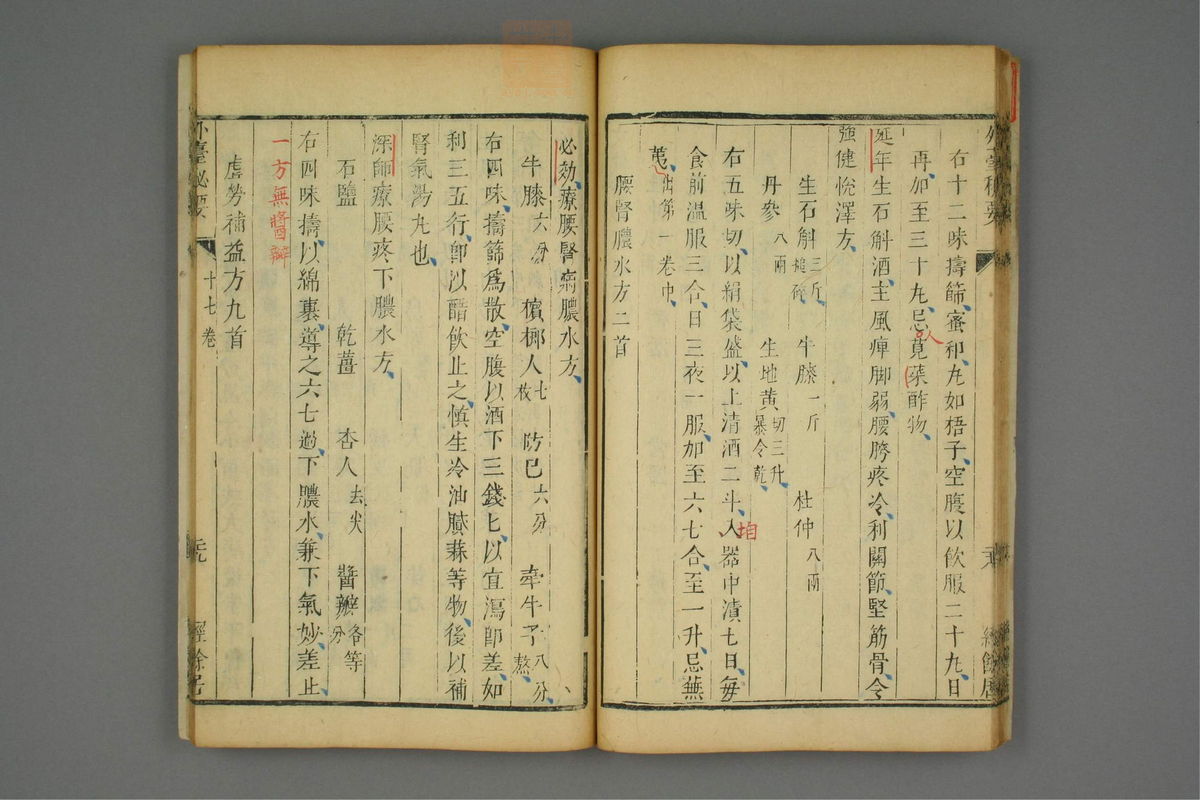 右十二味擣篩蜜和丸如梧子空腹以飲服二十丸日
再加至三十丸忌莧菜酢物
人
延年生石斛酒主風痺脚弱腰胯疼冷利關節堅筋骨令
強健悅澤方
生石斛三斤槌碎 牛膝一斤 杜仲八兩
丹參八兩 生地黄切三升暴令乾
右五味切以絹袋盛以上清酒二斗入器中漬七日每
食前温服三合日三夜一服加至六七合至一升忌蕪
荑出第一卷中
腰腎膿水方二首
必効療腰腎病膿水方
牛膝六分 檳榔人七枚 防已六分 牽牛子八分熬
右四味擣篩爲散空腹以酒下三錢匕以宜瀉卽差如
利三五行卽以醋飲止之慎生冷油膩蒜等物後以補
腎氣湯丸也
深師療腰疼下膿水方
石鹽 乾薑 杏人去尖 醬瓣各等分
右四味擣以綿裹導之六七遍下膿水兼下氣妙差止
一方無醬瓣
虛勞補益方九首
外臺秘要 十七卷 經餘居